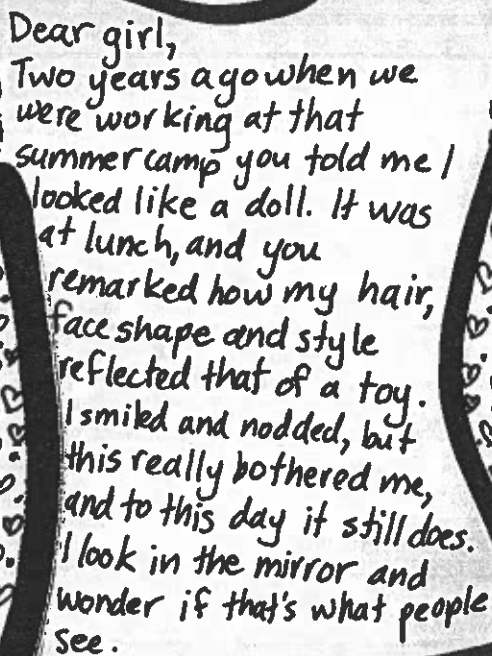 Dear girl,
Two years ago when we
were working at that
summer camp you told me I
looked like a doll. It was
at lunch, and you
remarked how my hair,
face shape and style
reflected that of a toy.
I smiled and nodded, but
this really bothered me,
and to this day it still does.
I look in the mirror and
wonder if that's what people
see.